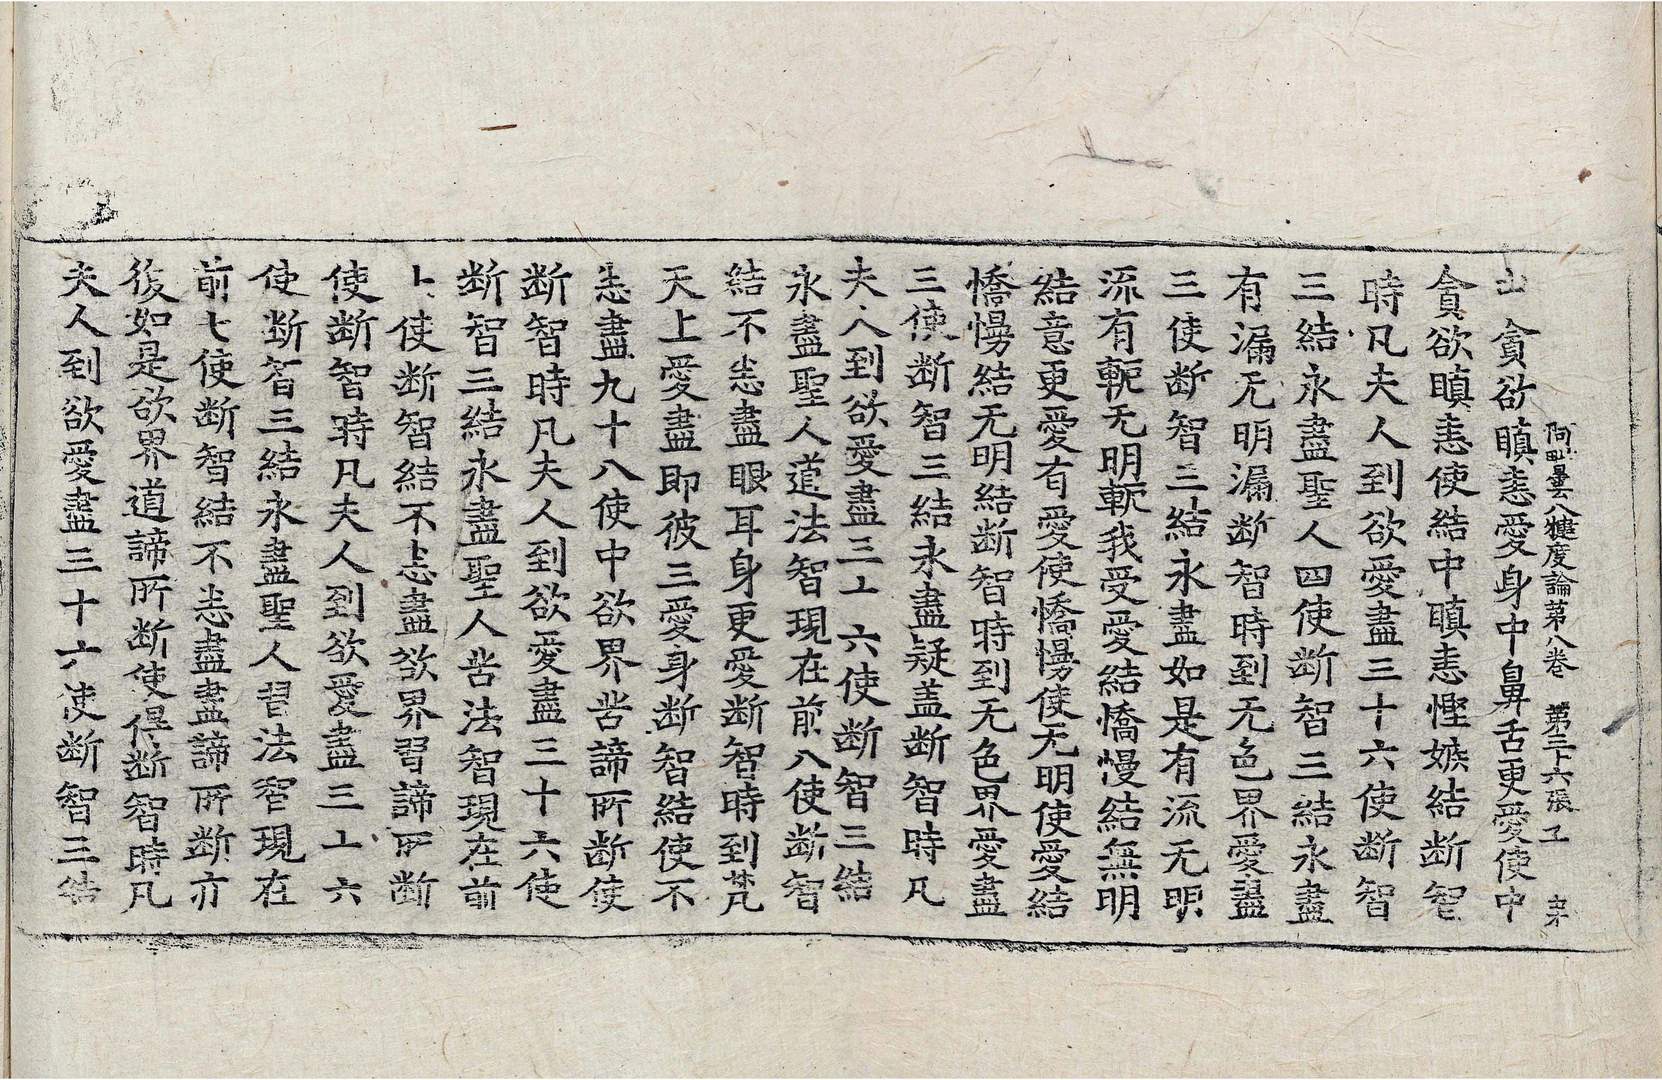 阿毗曇八揵度論第八卷 第三十六張 工
中貪欲瞋恚愛身中鼻舌更愛使中
貪欲瞋恚使結中瞋恚慳嫉結斷智
時凡夫人到欲愛盡三十六使斷智
三結永盡聖人四使斷智三結永盡
有漏无明漏斷智時到无色界愛盡
三使斷智三結永盡如是有流无明
流有軛无明軛我受愛結憍慢結無明
結意更愛有愛使憍慢使无明使愛結
憍慢結无明結斷智時到无色界愛盡
三使斷智三結永盡疑盖斷智時凡
夫人到欲愛盡三十六使斷智三結
永盡聖人道法智現在前八使斷智
結不恚盡眼耳身更愛斷智時到梵
天上愛盡即彼三愛身斷智結使不
恚盡九十八使中欲界苦諦所斷使
断智時凡夫人到欲愛盡三十六使
断智三結永盡聖人苦法智現在前
十使断智結不恚盡欲界習諦所断
使断智時凡夫人到欲愛盡三十六
使断智三結永盡聖人習法智現在
前七使断智結不恚盡盡諦所断亦
後如是欲界道諦所断使得断智時凡
夫人到欲愛盡三十六使断智三結